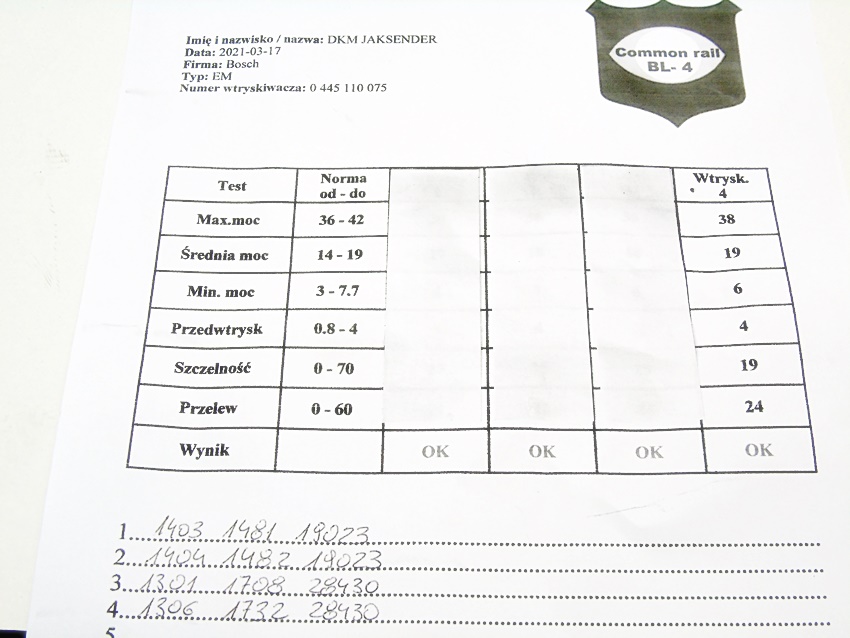 Imię i nazwisko / nazwa: DKM JAKSENDER
Data: 2021-03-17
Firma: Bosch
Typ: EM
Numer wtryskiwacza: 0 445 110 075
Common rail
BL- 4
Test Norma od - do Wtrysk. 4
Max.moc 36 - 42 38
Średnia moc 14 - 19 19
Min. moc 3 - 7.7 6
Przedwtrysk 0.8 - 4 4
Szczelność 0 - 70 19
Przelew 0 - 60 24
Wynik OK OK OK OK
1. 1403 1481 19023
2. 1404 1482 19023
3. 1301 1708 28430
4. 1306 1732 28430
5